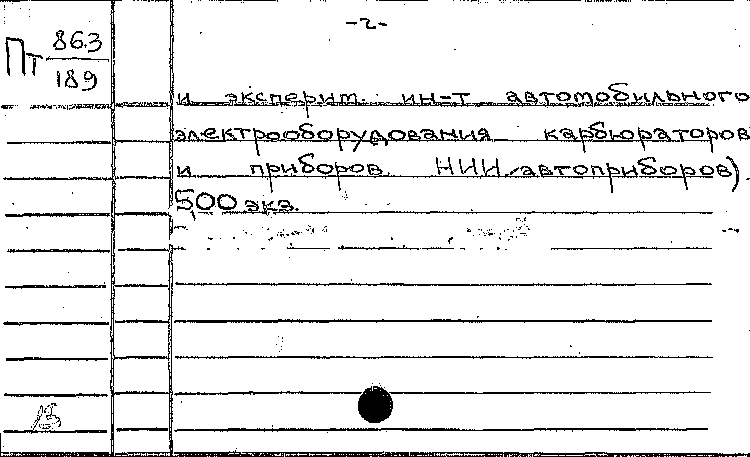 -2-
Пт 863
189
и эксперим. ин-т автомобильного
электрооборудования карбюраторов
и приборов НИИ автоприборов).
500 экз.